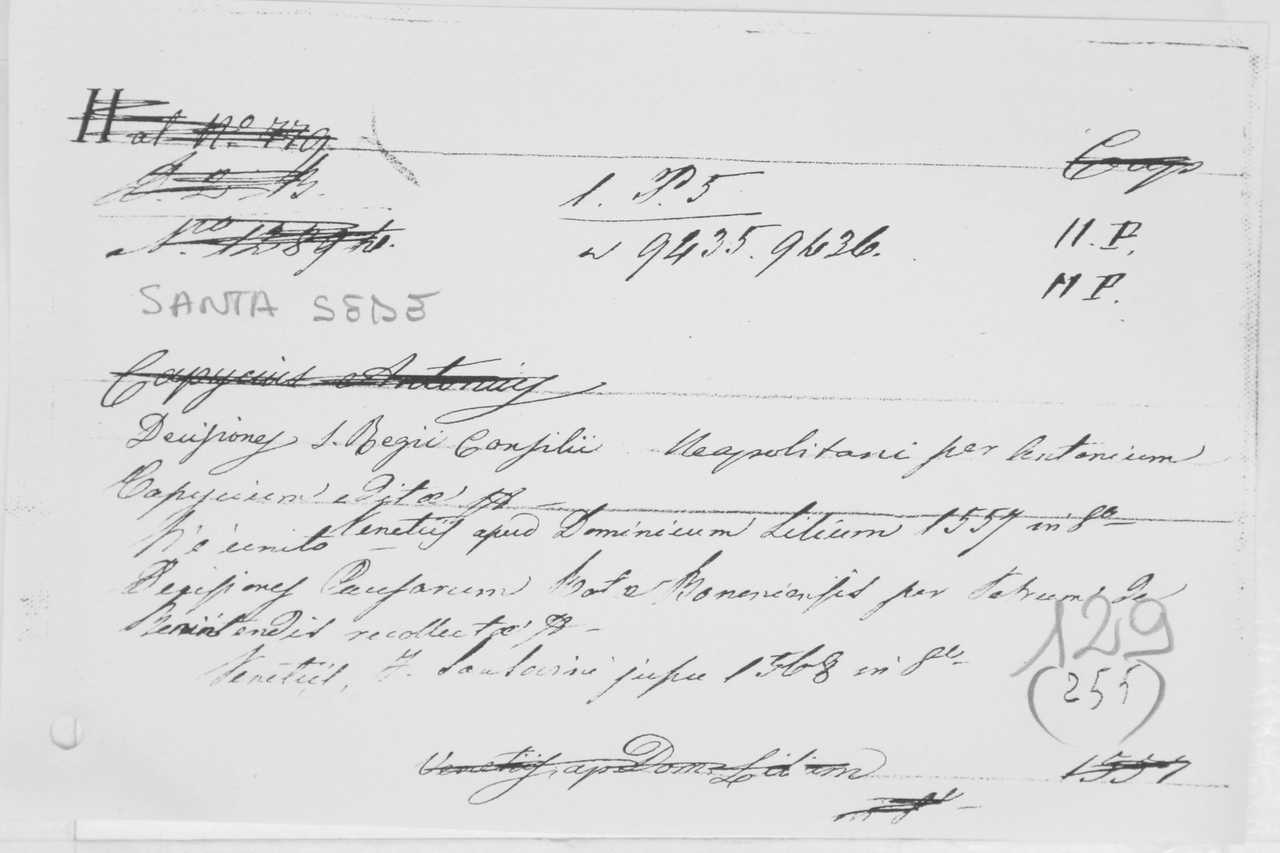 H al No. 779
C. 2 B.
1. P. 5
Cap
No. 12894.
9435. 9436.
11. P.
11 P.
SANTA SEDE
Capycius Antonius
Decisiones S. Regii Consilii Neapolitani per Antonium
Capycium editæ
Venetiis apud Dominicum Lilium 1557 in 8o
N'è unito
Decisiones Causarum Rotæ Bononiensis per Petrum de
Benintendis recollectæ
Venetiis, jussu 1568 in 8o
129
(255)
Venetiis, ap. Dom. Lilium 1557
in 8o